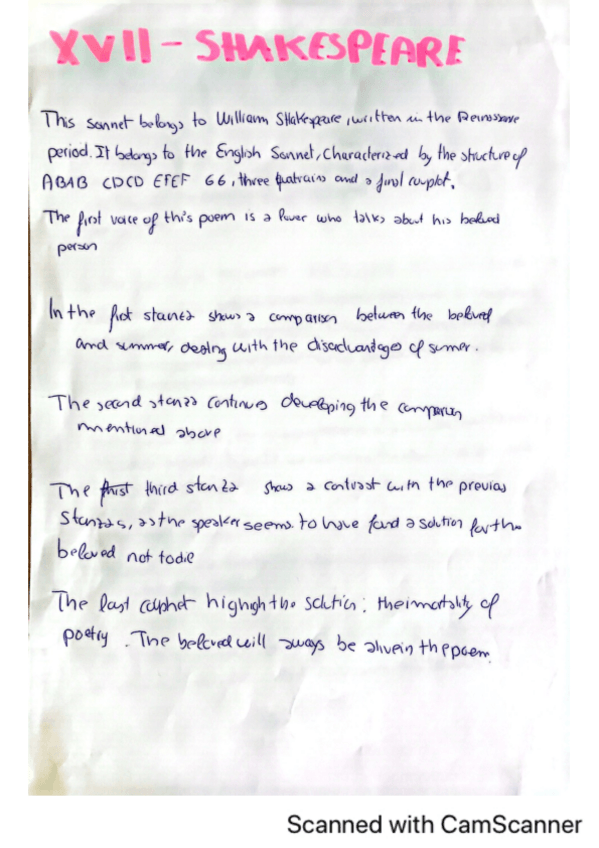 XVII - SHAKESPEARE
This sonnet belongs to William Shakespeare, written in the Renaissance
period. It belongs to the English Sonnet, characterized by the structure of
ABAB CDCD EFEF GG, three quatrains and a final couplet.
The first voice of this poem is a lover who talks about his beloved
person
In the first stanza shows a comparison between the beloved
and summer, dealing with the disadvantages of summer.
The second stanza continues developing the comparison
mentioned above
The first third stanza shows a contrast with the previous
Stanzas, as the speaker seems to have found a solution for the
beloved not to die
The last couplet the solution: the inmortality of
poetry. The beloved will always be alive in the poem.
Scanned with CamScanner